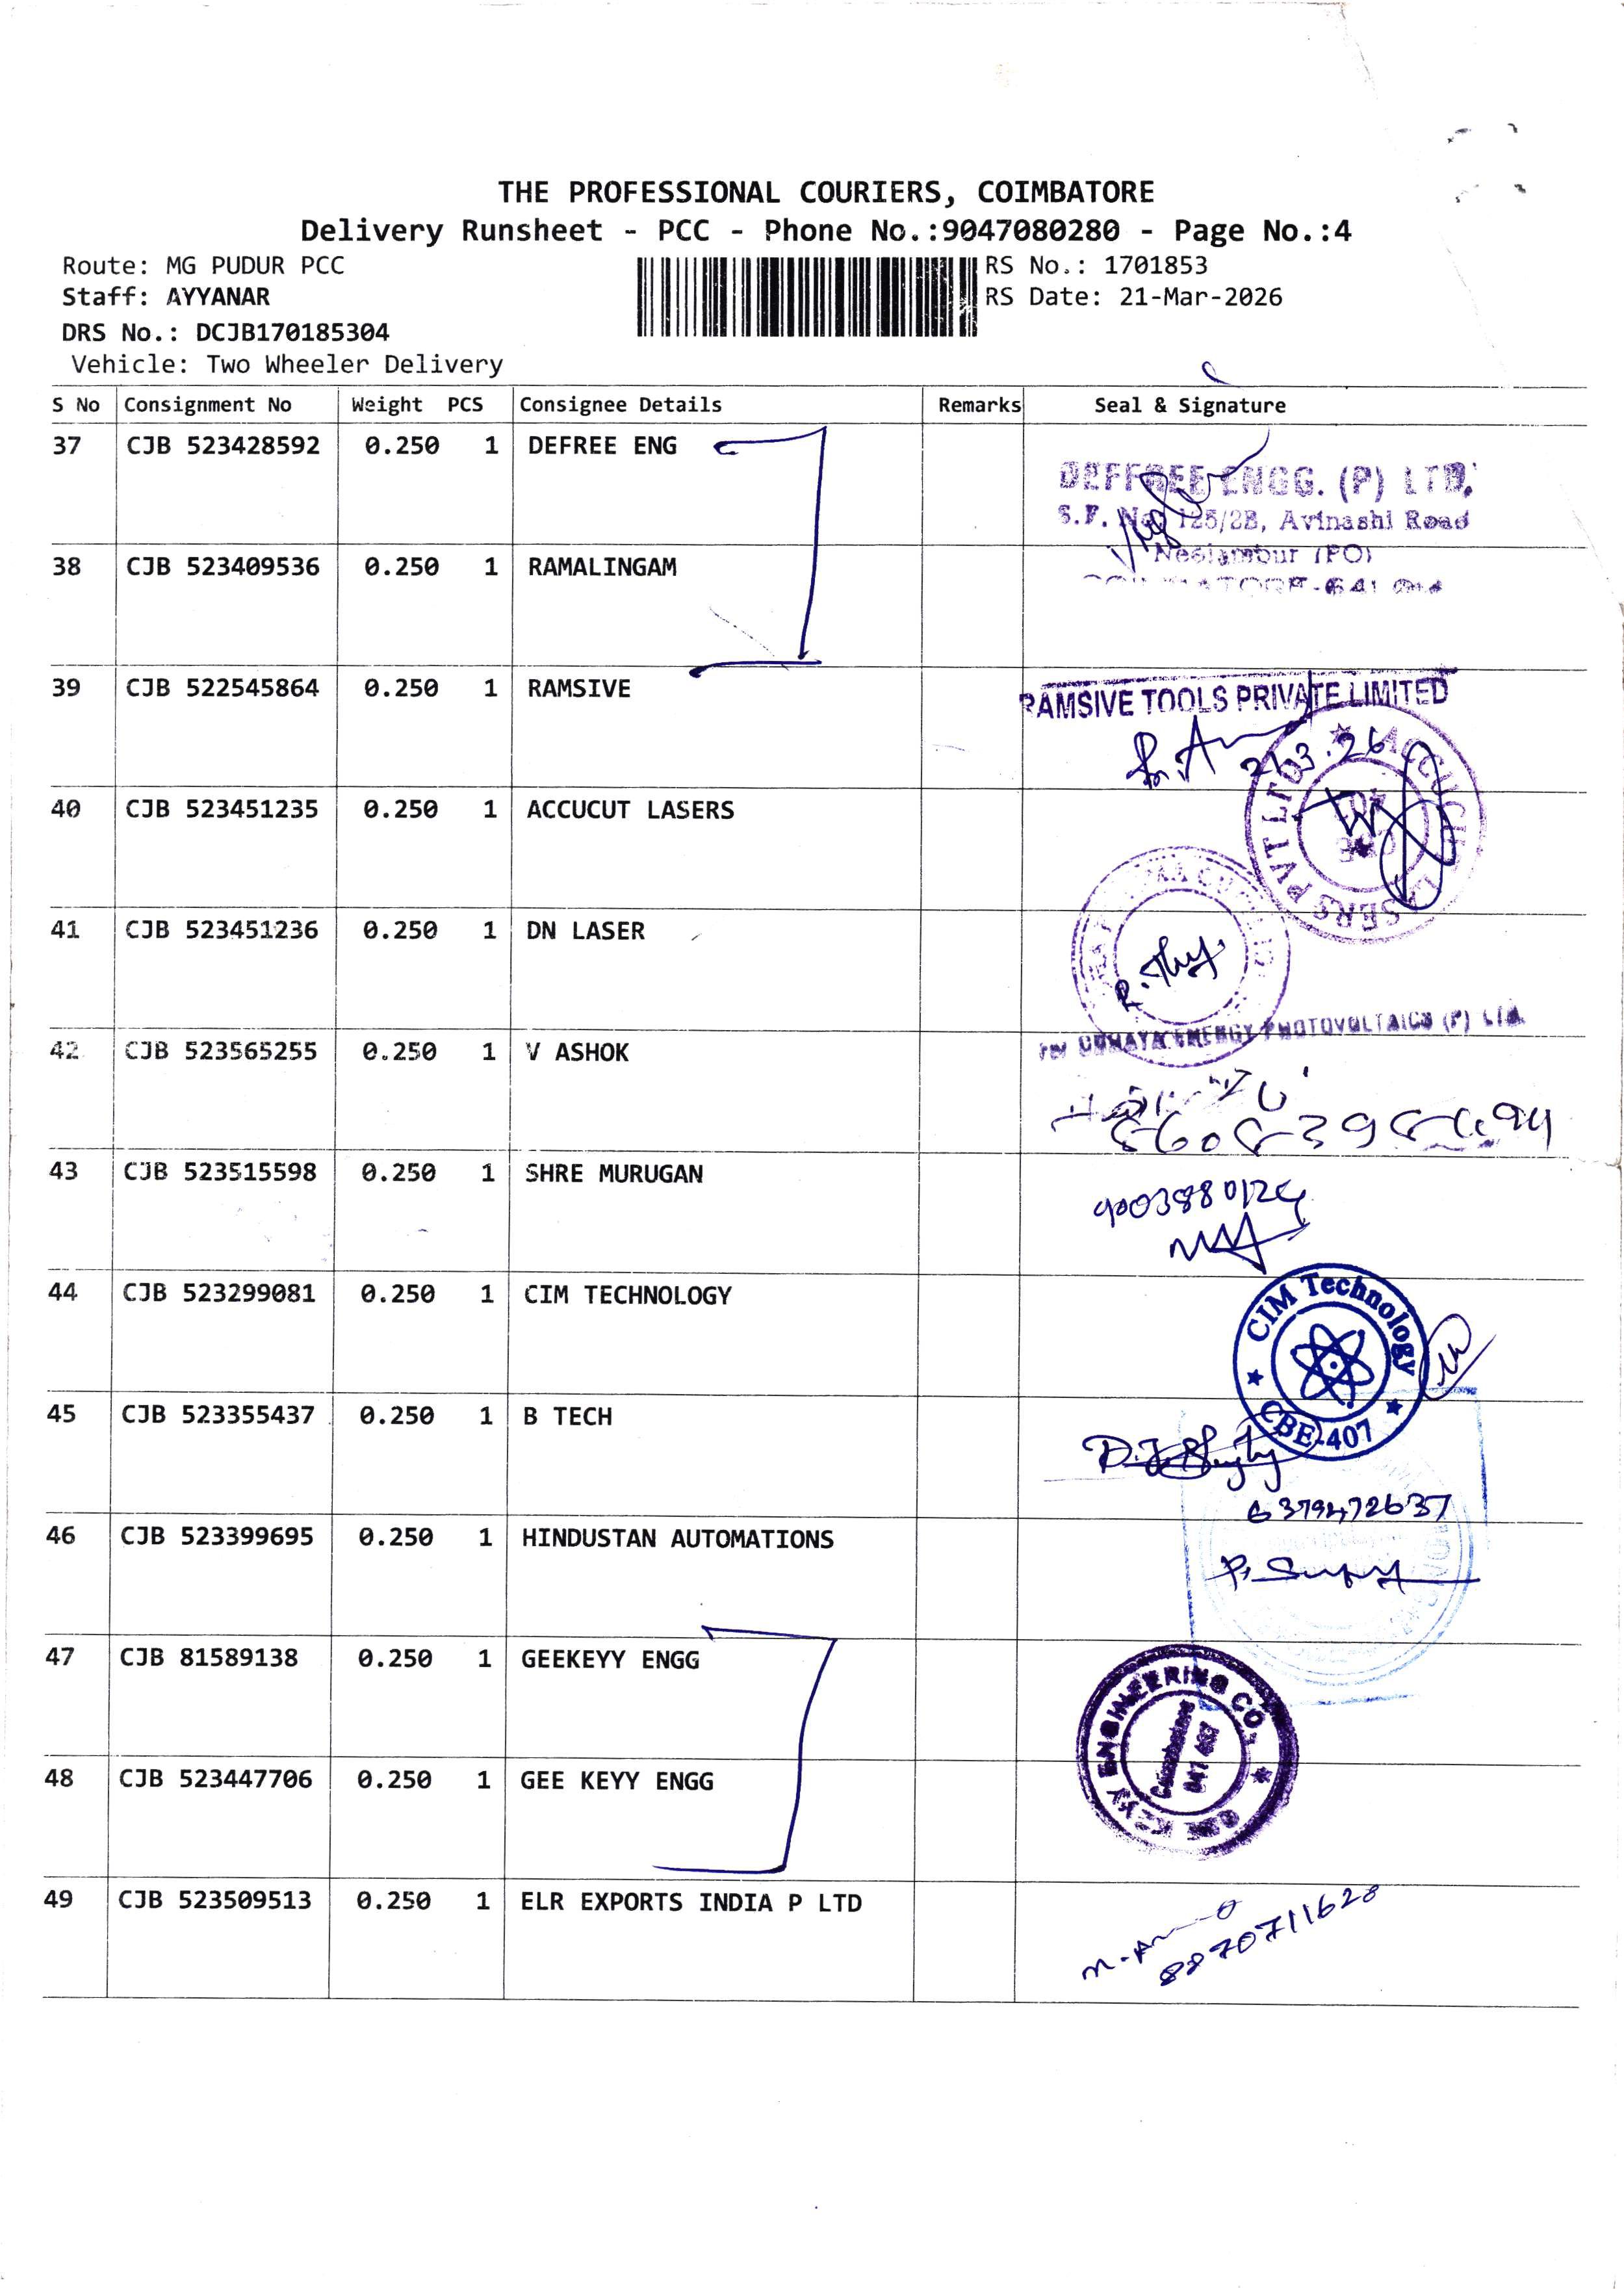 THE PROFESSIONAL COURIERS, COIMBATORE
Delivery Runsheet - PCC - Phone No.:9047080280 - Page No.:4
Route: MG PUDUR PCC
RS No.: 1701853
Staff: AYYANAR
RS Date: 21-Mar-2026
DRS No.: DCJB170185304
Vehicle: Two Wheeler Delivery
S No Consignment No Weight PCS Consignee Details Remarks Seal & Signature
37 CJB 523428592 0.250 1 DEFREE ENG
DEFFREE ENGG. (P) LTD.
S.F. No. 125/2B, Avinashi Road
Neelambur (PO)
38 CJB 523409536 0.250 1 RAMALINGAM
39 CJB 522545864 0.250 1 RAMSIVE
RAMSIVE TOOLS PRIVATE LIMITED
21.3.26
40 CJB 523451235 0.250 1 ACCUCUT LASERS
ACCUCUT LASERS PVT LTD
41 CJB 523451236 0.250 1 DN LASER
42 CJB 523565255 0.250 1 V ASHOK
ENERGY PHOTOVOLTAICS (P) Ltd.
43 CJB 523515598 0.250 1 SHRE MURUGAN
44 CJB 523299081 0.250 1 CIM TECHNOLOGY
CIM Technology
CBE-407
45 CJB 523355437 0.250 1 B TECH
6379472637
46 CJB 523399695 0.250 1 HINDUSTAN AUTOMATIONS
47 CJB 81589138 0.250 1 GEEKEYY ENGG
GEE KEYY ENGINEERING CO.,
Coimbatore
48 CJB 523447706 0.250 1 GEE KEYY ENGG
49 CJB 523509513 0.250 1 ELR EXPORTS INDIA P LTD
8870711628